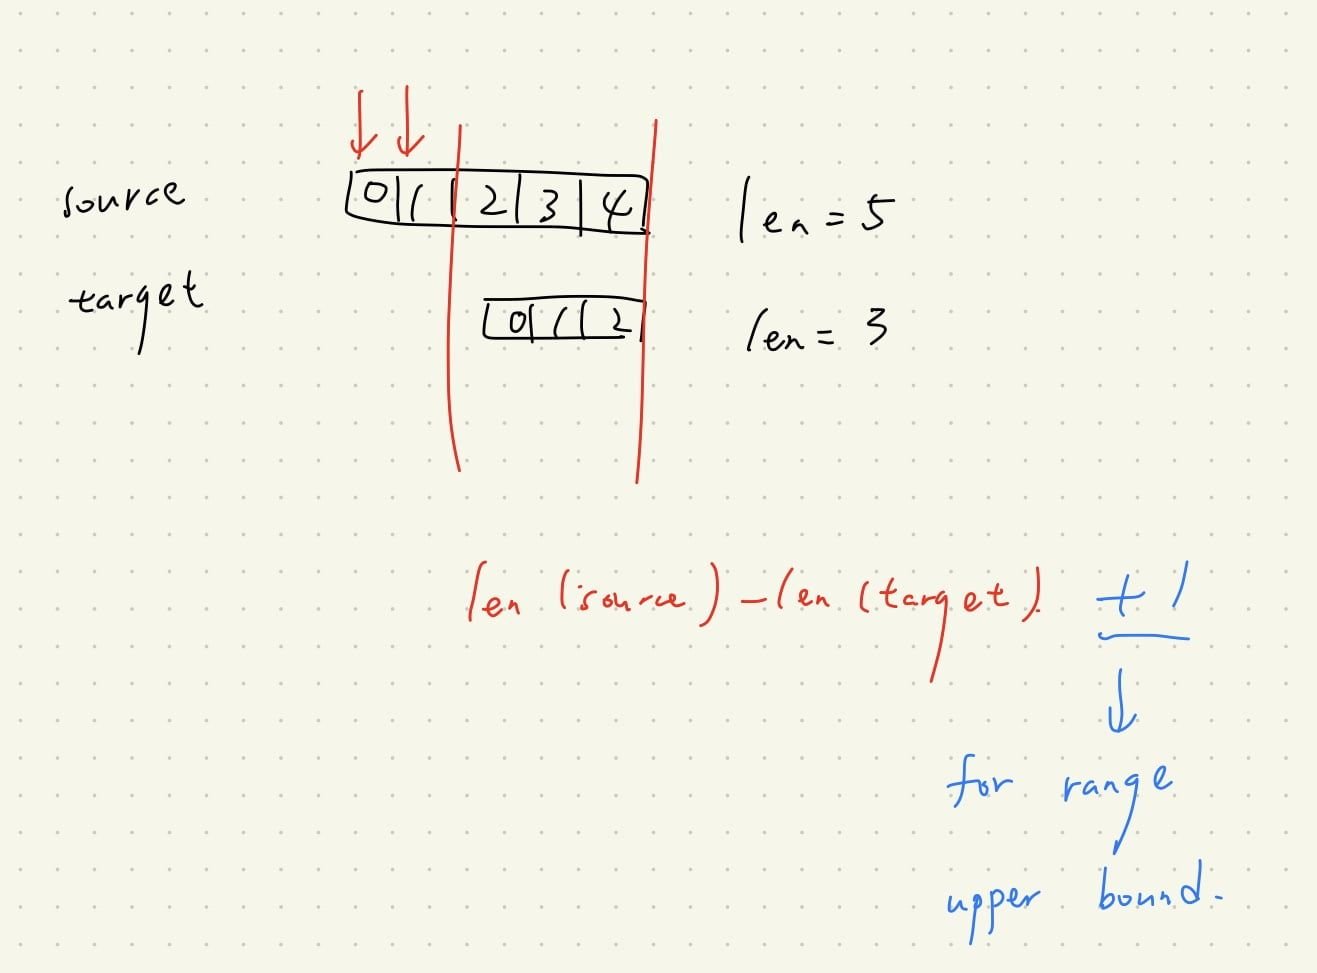 source 0 1 2 3 4 len = 5
target 0 1 2 len = 3
len (source) - len (target) + 1
for range
upper bound.